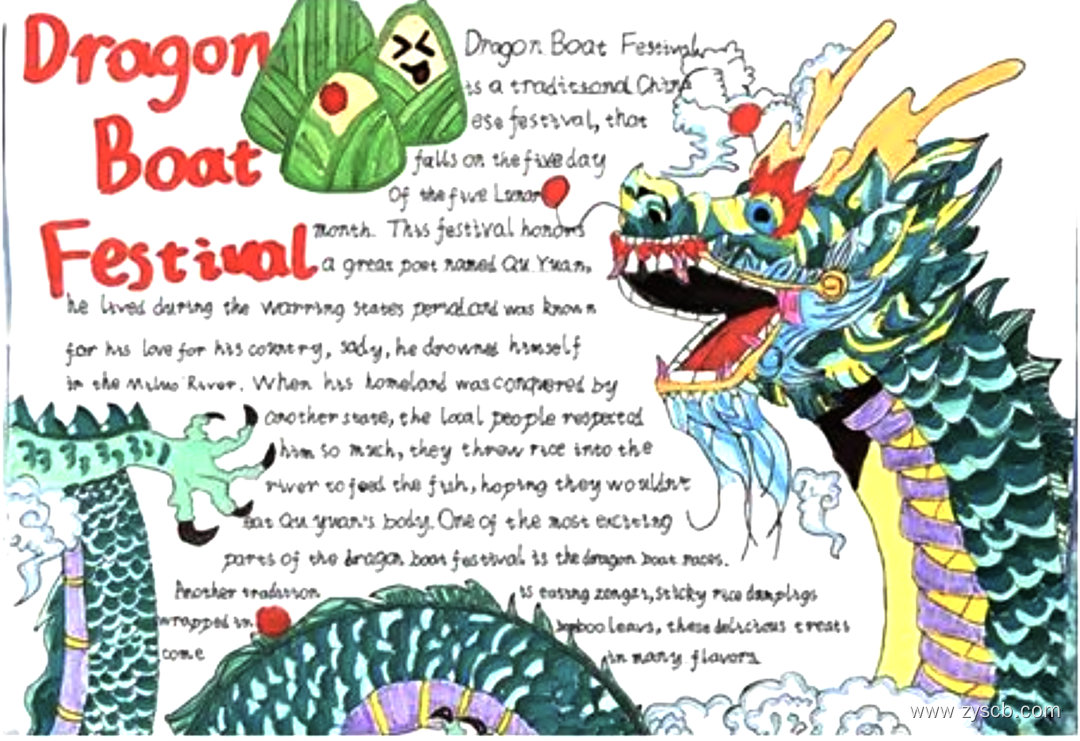 Dragon
Boat
Festival
Dragon Boat Festival
is a traditional Chin
ese festival, that
falls on the five day
Of the five Lunar
month. This festival honors
a great poet named Qu Yuan,
he lived during the warring states period and was known
for his love for his country, sady, he drowned himself
in the Miluo River. When his homeland was conquered by
another state, the local people respected
him so much, they threw rice into the
river to feed the fish, hoping they wouldn't
eat Qu yuan's body. One of the most exciting
parts of the dragon boat festival is the dragon boat races.
Another tradition is eating zongzi, sticky rice dumpligs
wrapped in bamboo leavs, these delicious treats
come in many flavors
www.zyscb.com